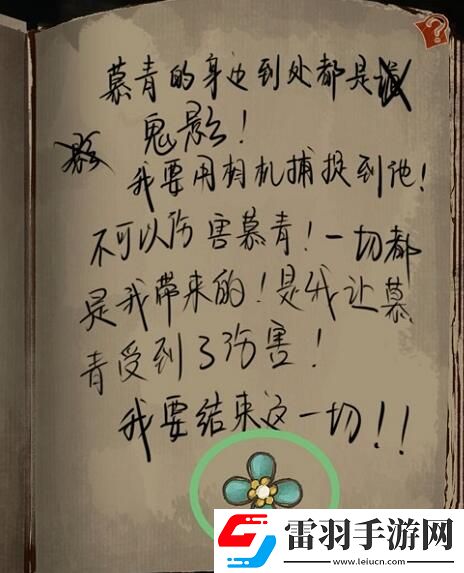 慕青的身边到处都是
鬼影！
我要用相机捕捉到他！
不可以伤害慕青！一切都
是我带来的！是我让慕
青受到了伤害！
我要结束这一切！！
?
雷羽手游网
www.leiucn.com